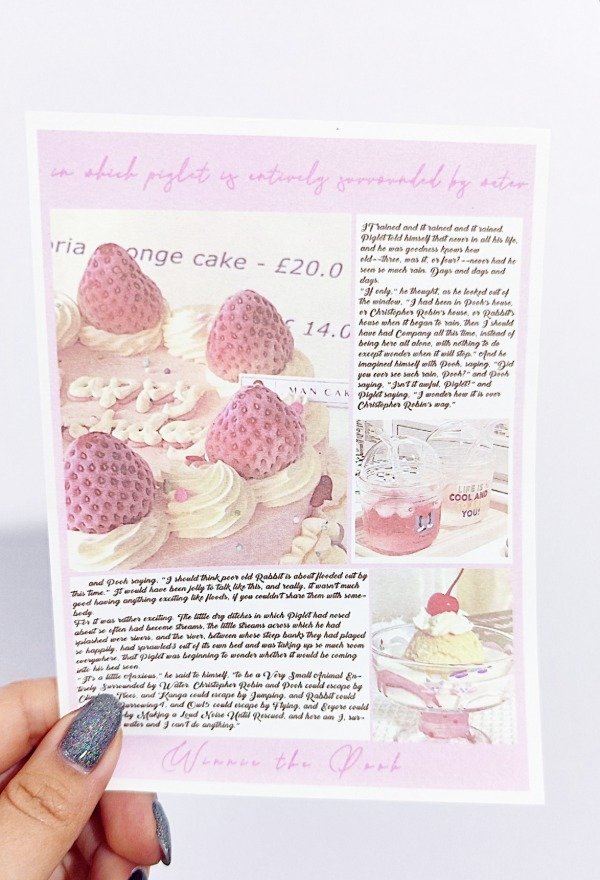 in which piglet is entirely surrounded by water
oria onge cake - £20.0
14.0
MAN CAK
IT rained and it rained and it rained.
Piglet told himself that never in all his life,
and he was goodness knows how
old--three, was it, or four?--never had he
seen so much rain. Days and days and
days.
"If only," he thought, as he looked out of
the window, "I had been in Pooh's house,
or Christopher Robin's house, or Rabbit's
house when it began to rain, then I should
have had Company all this time, instead of
being here all alone, with nothing to do
except wonder when it will stop." And he
imagined himself with Pooh, saying, "Did
you ever see such rain, Pooh?" and Pooh
saying, "Isn't it awful, Piglet?" and
Piglet saying, "I wonder how it is over
Christopher Robin's way,"
LIFE IS
COOL AND
YOU!
and Pooh saying, "I should think poor old Rabbit is about flooded out by
this time." It would have been jolly to talk like this, and really, it wasn't much
good having anything exciting like floods, if you couldn't share them with some-
body.
For it was rather exciting. The little dry ditches in which Piglet had nosed
about so often had become streams, the little streams across which he had
splashed were rivers, and the river, between whose steep banks they had played
so happily, had sprawled5 out of its own bed and was taking up so much room
everywhere, that Piglet was beginning to wonder whether it would be coming
into his bed soon.
"It's a little Anxious," he said to himself, "to be a Very Small Animal En-
tirely Surrounded by Water. Christopher Robin and Pooh could escape by
Trees, and Kanga could escape by Jumping, and Rabbit could
urrowing4, and Owl5 could escape by Flying, and Eeyore could
by Making a Loud Noise Until Rescued, and here am I, sur-
water and I can't do anything."
Winnie the Pooh